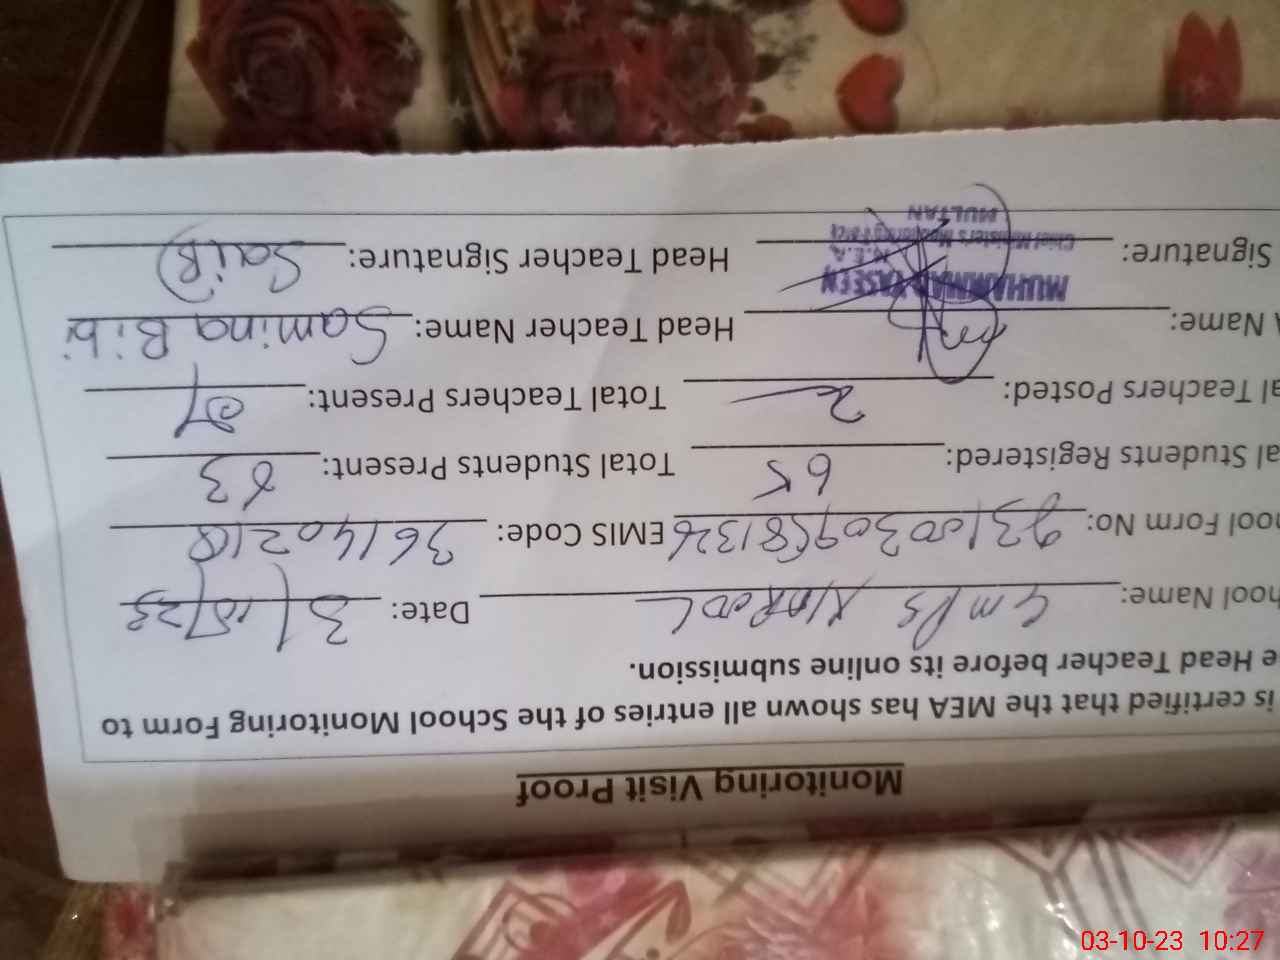 Monitoring Visit Proof
is certified that the MEA has shown all entries of the School Monitoring Form to
e Head Teacher before its online submission.
hool Name: GMPS Date: 3/10/23
hool Form No: EMIS Code: 36140218
al Students Registered: 65 Total Students Present: 63
al Teachers Posted: 2 Total Teachers Present:
Name: Head Teacher Name: Samina Bibi
Signature: Head Teacher Signature:
MUHAMMAD YASEEN
M.E.A
Chief Minister's Monitoring Force
MULTAN
03-10-23 10:27